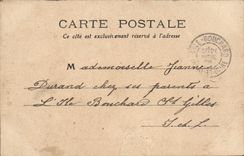 CARTE POSTALE
Ce côté est exclusivement réservé à l'adresse
Mademoiselle Jeanne
Durand chez ses parents à
L'Ile Bouchard St Gilles
I. et L.